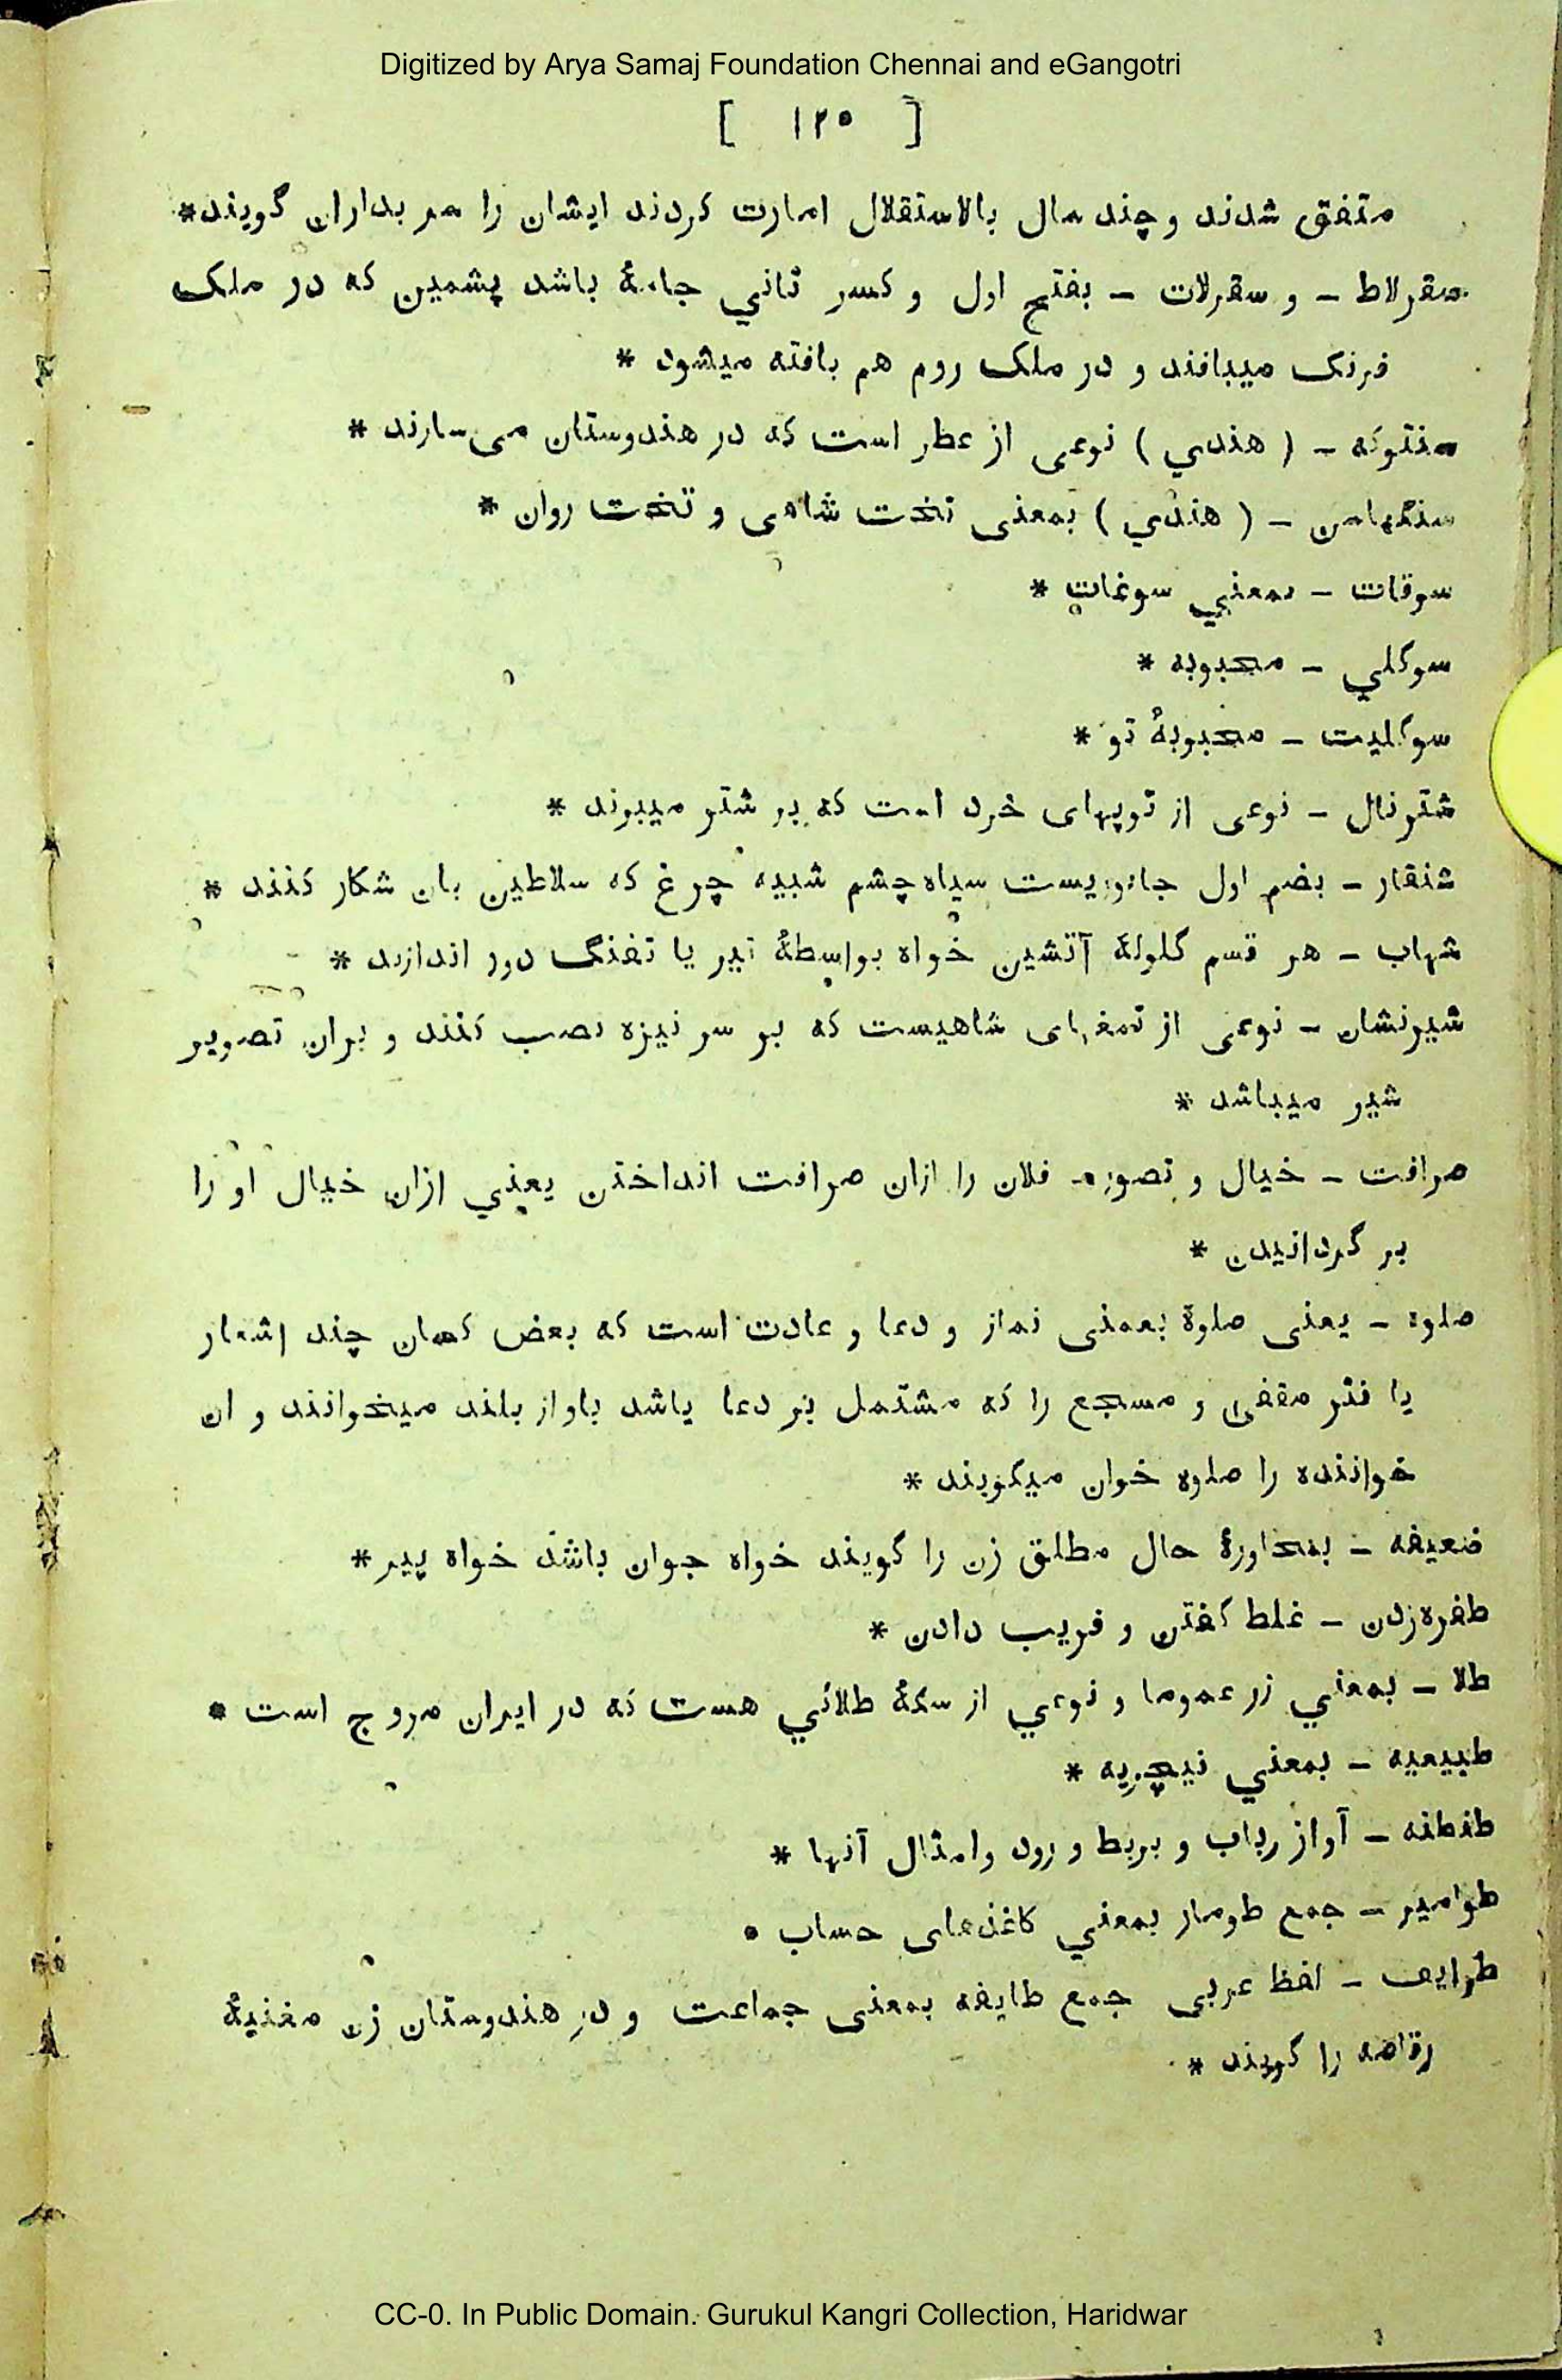 Digitized by Arya Samaj Foundation Chennai and eGangotri
[ ۱۲۵ ]
متفق شدند و چند سال بالاستقلال امارت کردند ایشان را سر بداران گویند *
سقرلاط – و سقرلات – بفتح اول و کسر ثاني جامهٔ باشد پشمین که در ملک
فرنک میبافند و در ملک روم هم بافته میشود *
سنتوکه – ( هندي ) نوعی از عطر است که در هندوستان می سازند *
سنگهاسن – ( هندي ) بمعنی تخت شاهی و تخت روان *
سوقات – بمعني سوغات *
سوگلي – محبوبه *
سوگلیت – محبوبهٔ تو *
شترنال – نوعی از توپهای خرد است که بر شتر میبرند *
شنقار – بضم اول جانوریست سیاه چشم شبیه چرغ که سلاطین بان شکار کنند *
شهاب – هر قسم گلولهٔ آتشین خواه بواسطهٔ تیر یا تفنگ دور اندازند *
شیرنشان – نوعی از تمغهای شاهیست که بر سر نیزه نصب کنند و بران تصویر
شیر میباشد *
صرافت – خیال و تصور – فلان را ازان صرافت انداختن یعني ازان خیال او را
بر گردانیدن *
صلوه – یعنی صلوة بمعنی نماز و دعا و عادت است که بعض کسان چند اشعار
یا نثر مقفی و مسجع را که مشتمل بر دعا باشد باواز بلند میخوانند و ان
خواننده را صلوه خوان میگویند *
ضعیفه – بمحاورهٔ حال مطلق زن را گویند خواه جوان باشد خواه پیر *
طفره زدن – غلط گفتن و فریب دادن *
طلا – بمعني زر عموما و نوعي از سکهٔ طلائي هست که در ایران مروج است *
طبیعیه – بمعني نیچریه *
طنطنه – آواز رباب و بربط و رود و امثال آنها *
طوامیر – جمع طومار بمعني کاغذهای حساب *
طوایف – لفظ عربی جمع طایفه بمعنی جماعت و در هندوستان زن مغنیهٔ
رقاصه را گویند *
CC-0. In Public Domain. Gurukul Kangri Collection, Haridwar